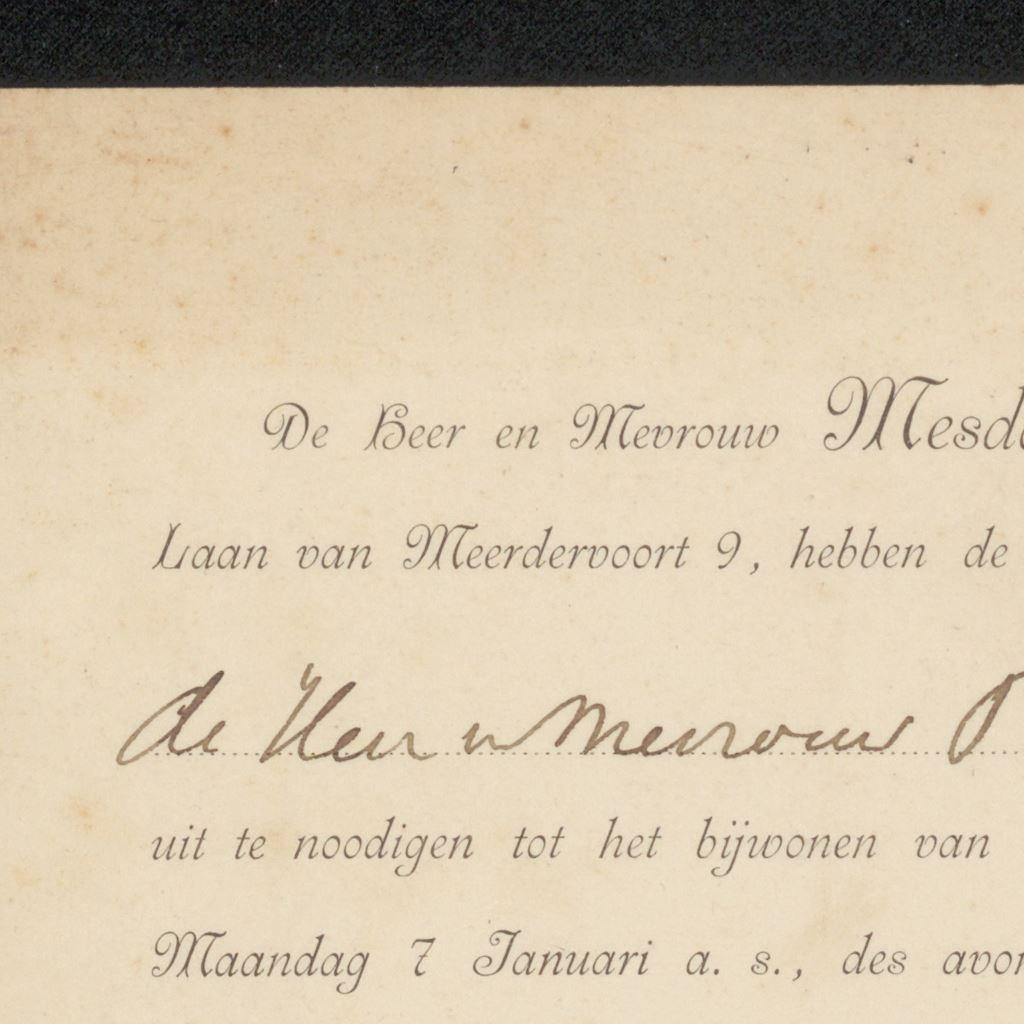 De Heer en Mevrouw Mesda
Laan van Meerdervoort 9, hebben de
de Heer en Mevrouw P
uit te noodigen tot het bijwonen van
Maandag 7 Januari a. s., des avon